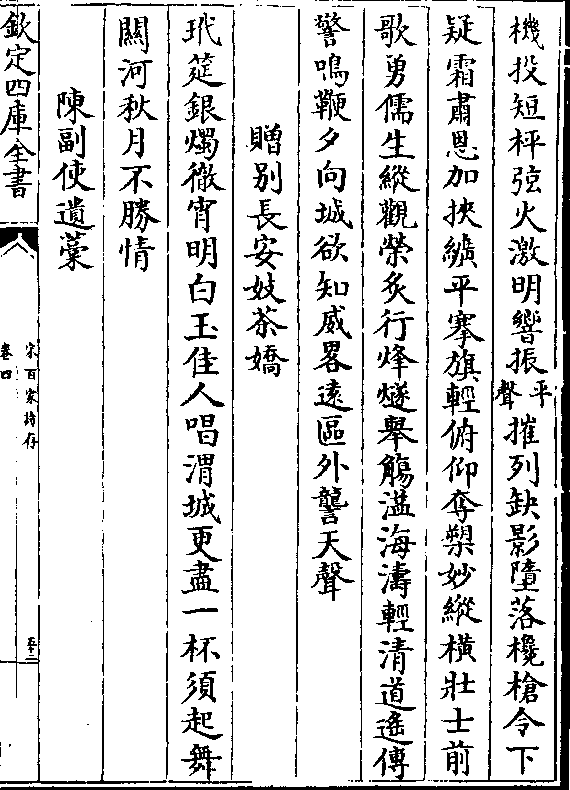 機投短枰弦火激明響振平聲摧列缺影墮落欃槍令下
疑霜肅恩加挾纊平搴旗輕俯仰奪槊妙縱橫壯士前
歌勇儒生縱觀榮炙行烽燧舉觴溢海濤輕清道遙傳
警鳴鞭夕向城欲知威畧遠區外讋天聲
贈别長安妓茶嬌
玳筵銀燭徹宵明白玉佳人唱渭城更盡一杯須起舞
關河秋月不勝情
陳副使遺藁
欽定四庫全書
宋百家詩存
卷四